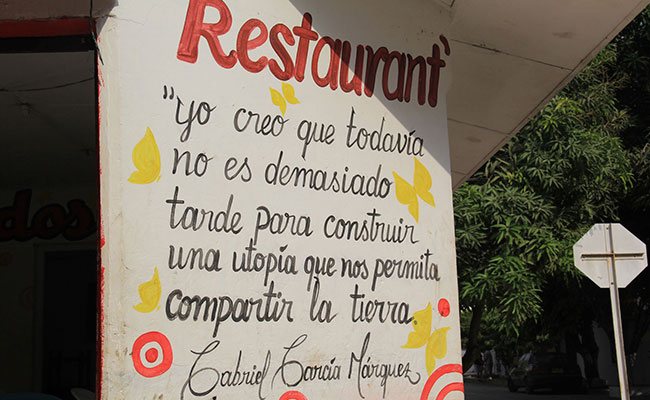 Restaurant`
"yo creo que todavía
no es demasiado
tarde para construir
una utopía que nos permita
compartir la tierra.
Gabriel García Márquez
dos